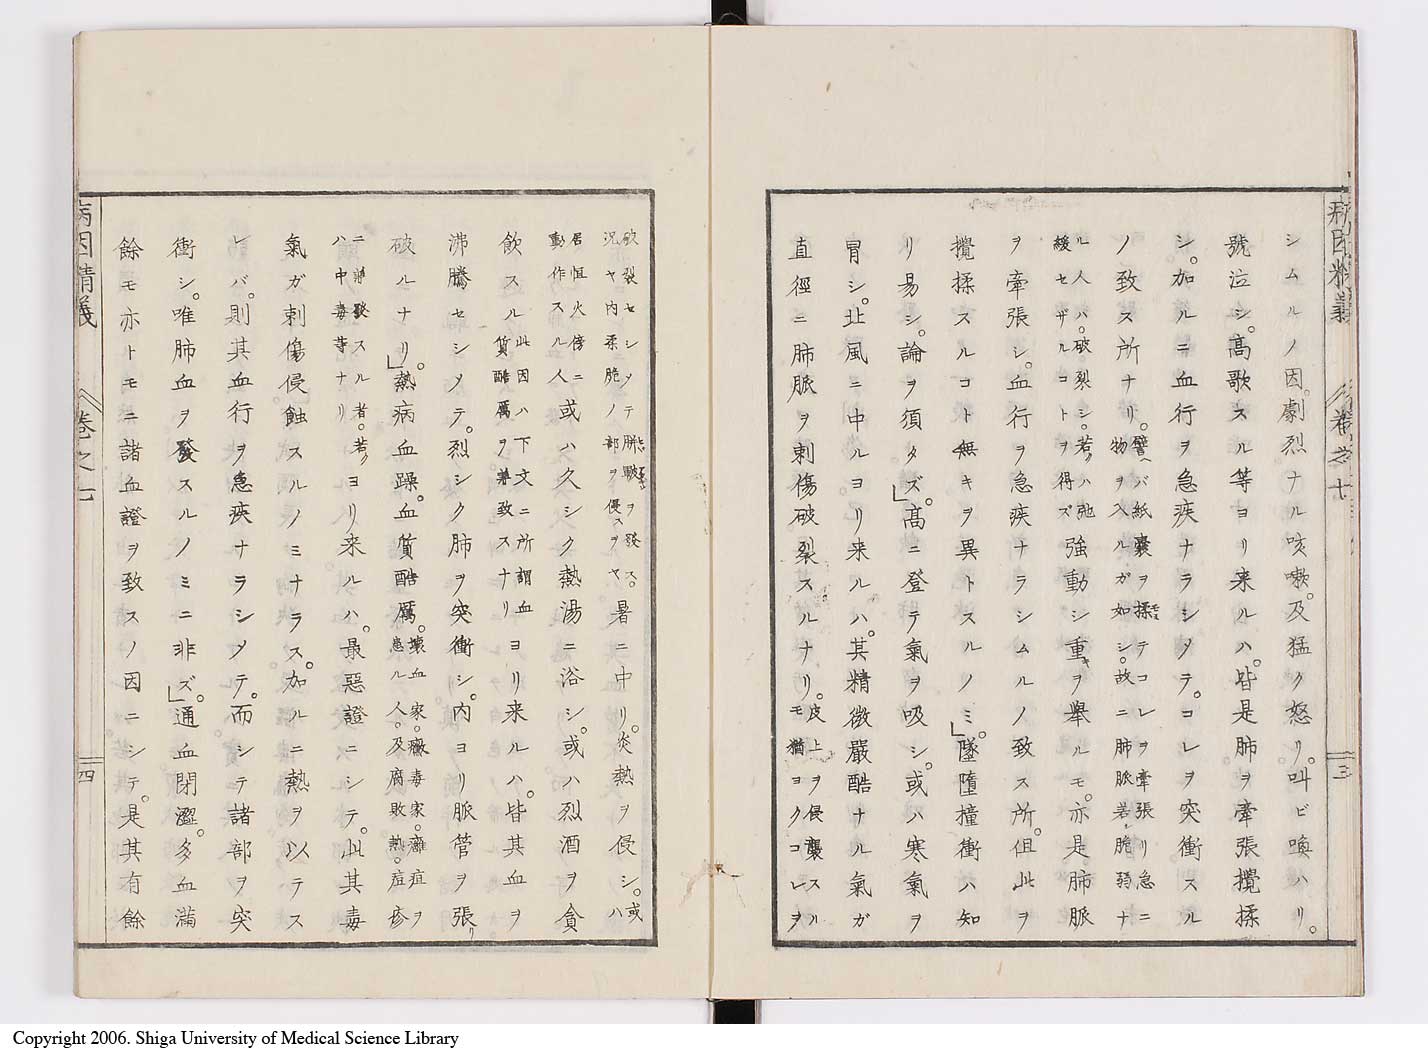 シムルノ因。劇烈ナル咳嗽。及猛ク怒リ。叫ビ喚ハリ。
號泣シ。高歌スル等ヨリ来ルハ。皆是肺ヲ牽張攪揉
シ。加ルニ血行ヲ急疾ナラシメテ。コレヲ突衝スル
ノ致ス所ナリ。譬ヘバ紙嚢ヲ揉テコレヲ牽張リ急ニ
物ヲ入ルガ如シ。故ニ肺脈甚ダ脆弱ナ
ル人ハ。破裂シ。若クハ弛
緩セザルコトヲ得ズ強動シ重キヲ擧ルモ。亦是肺脈
ヲ牽張シ。血行ヲ急疾ナラシムルノ致ス所。但此ヲ
攪揉スルコト無キヲ異トスルノミ。」墜堕撞衝ハ知
リ易シ。論ヲ須タズ。」高ニ登テ氣ヲ吸シ。或ハ寒氣ヲ
冒シ。北風ニ中ルヨリ来ルハ。其精微嚴酷ナル氣ガ
直徑ニ肺脈ヲ刺傷破裂スルナリ。皮上ヲ侵襲スル
モ猶ヨクコレヲ
病因精義
卷之七
三
破裂セシメテ胼皸ヲ發ス。
況ヤ内柔脆ノ部ヲ侵スヲヤ 暑ニ中リ。炎熱ヲ侵シ。或ハ
居恒火傍ニ
動作スル人 或ハ久シク熱湯ニ浴シ。或ハ烈酒ヲ貪
飲スル 此因ハ下文ニ所謂血
質酷厲ヲ兼致スナリ ヨリ来ルハ。皆其血ヲ
沸騰セシメテ。烈シク肺ヲ突衝シ。内ヨリ脈管ヲ張リ
破ルナリ。」熱病血躁。血質酷厲。壊血家。黴毒家。癰疽ヲ
患ル人。及腐敗熱。痘疹
ニ兼發スル者。若ク
ハ中毒等ナリ ヨリ来ルハ。最惡證ニシテ。此其毒
氣ガ刺傷侵蝕スルノミナラス。加ルニ熱ヲ以テス
レバ。則其血行ヲ急疾ナラシメテ。而シテ諸部ヲ突
衝シ。唯肺血ヲ發スルノミニ非ズ。」通血閉澀。多血滿
餘モ亦トモニ諸血證ヲ致スノ因ニシテ。是其有餘
病因精義
卷之七
四
Copyright 2006. Shiga University of Medical Science Library